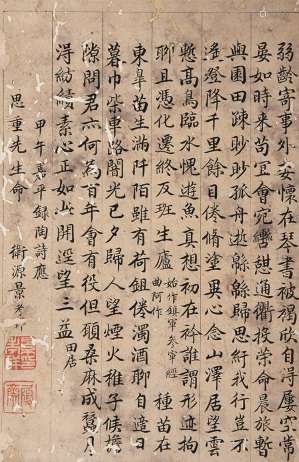 弱齡寄事外委懷在琴書被褐欣自得屢空常
晏如時来苟冥會宛轡通衢投策命晨旅暫
與園田疎眇眇孤舟逝緜緜歸思紆我行豈不
遙登降千里餘目倦脩塗異心念山澤居望雲
慙高鳥臨水愧遊魚真想初在衿誰謂形迹拘
聊且憑化遷終反班生廬 始作鎮軍參軍經曲阿作 種苗在
東皋苗生滿阡陌雖有荷鉏倦濁酒聊自適日
暮巾柴車路闇光已夕歸人望煙火稚子候檐
隙問君亦何為百年會有役但願桑麻成蠶月
得紡績素心正如此開逕望三益 田居
甲午平録陶詩應
思重先生命 衛源景